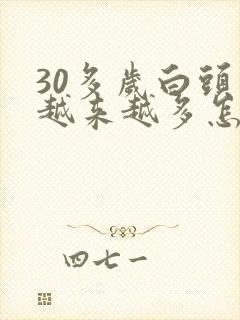 30多歲白頭
越来越多怎
四七一